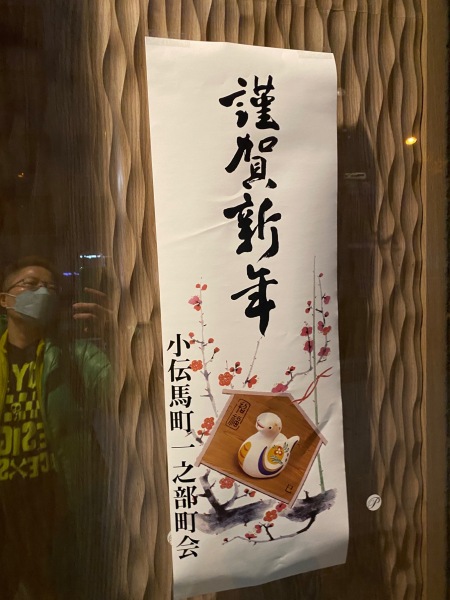 謹賀新年
小伝馬町一之部町会